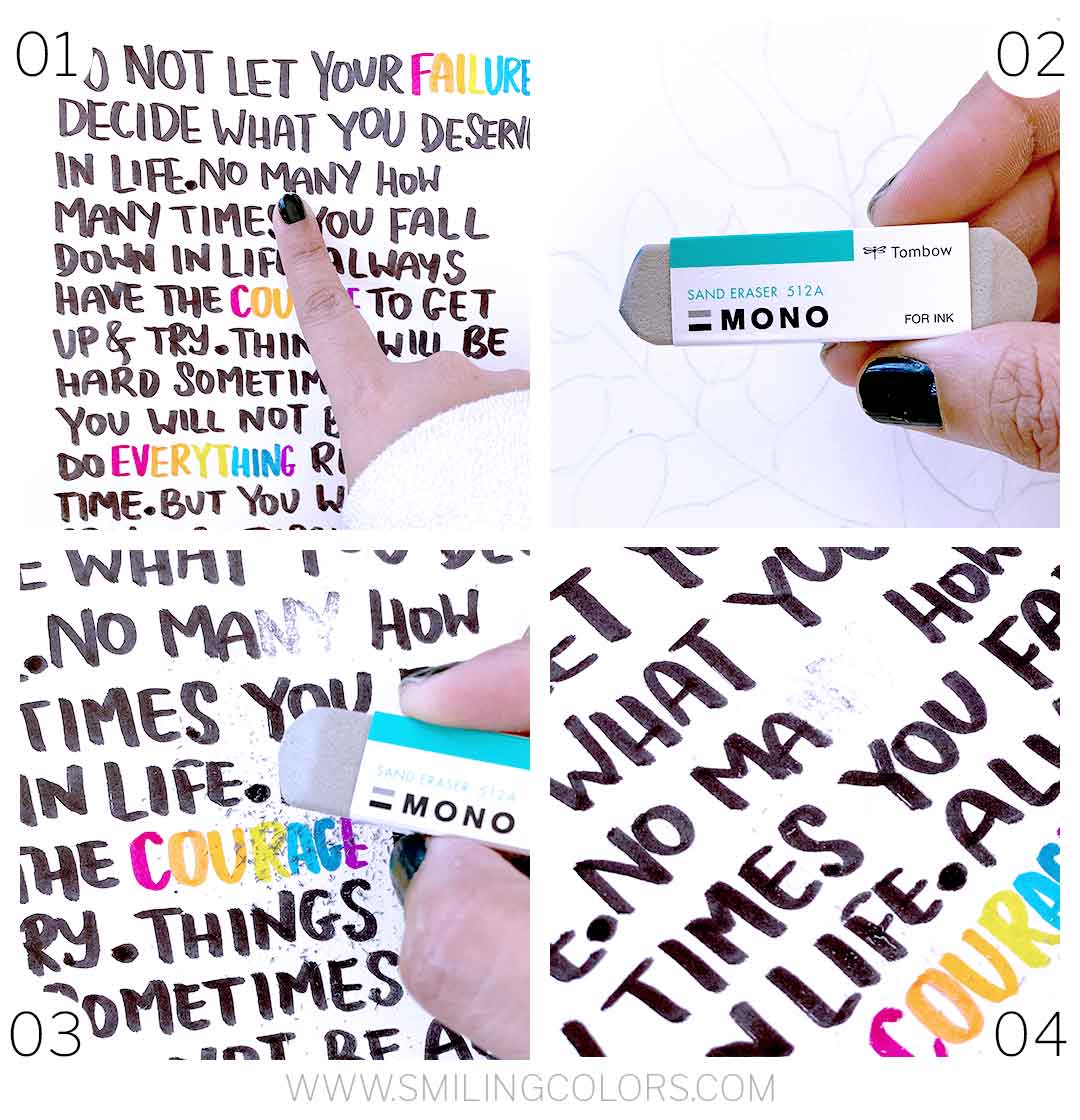 01
NOT LET YOUR FAILURE
DECIDE WHAT YOU DESERV
IN LIFE.NO MANY HOW
MANY TIMES YOU FALL
DOWN IN LIFE ALWAYS
HAVE THE COU E TO GET
UP & TRY. THIN WILL BE
HARD SOMETIM
YOU WILL NOT B
DO EVERYTHING RI
TIME. BUT YOU W
02
Tombow
SAND ERASER 512A
MONO
FOR INK
E WHAT YOU DE
.NO MANY HOW
TIMES YOU
IN LIFE.
THE COURAGE
RY. THINGS
SOMETIMES
NOT BE A
SAND ERASER 512A
MONO
03
ET YO
WHAT YOU HOW
.NO MA YOU FA
TIMES
N LIFE. ALW
COURAG
04
WWW.SMILINGCOLORS.COM